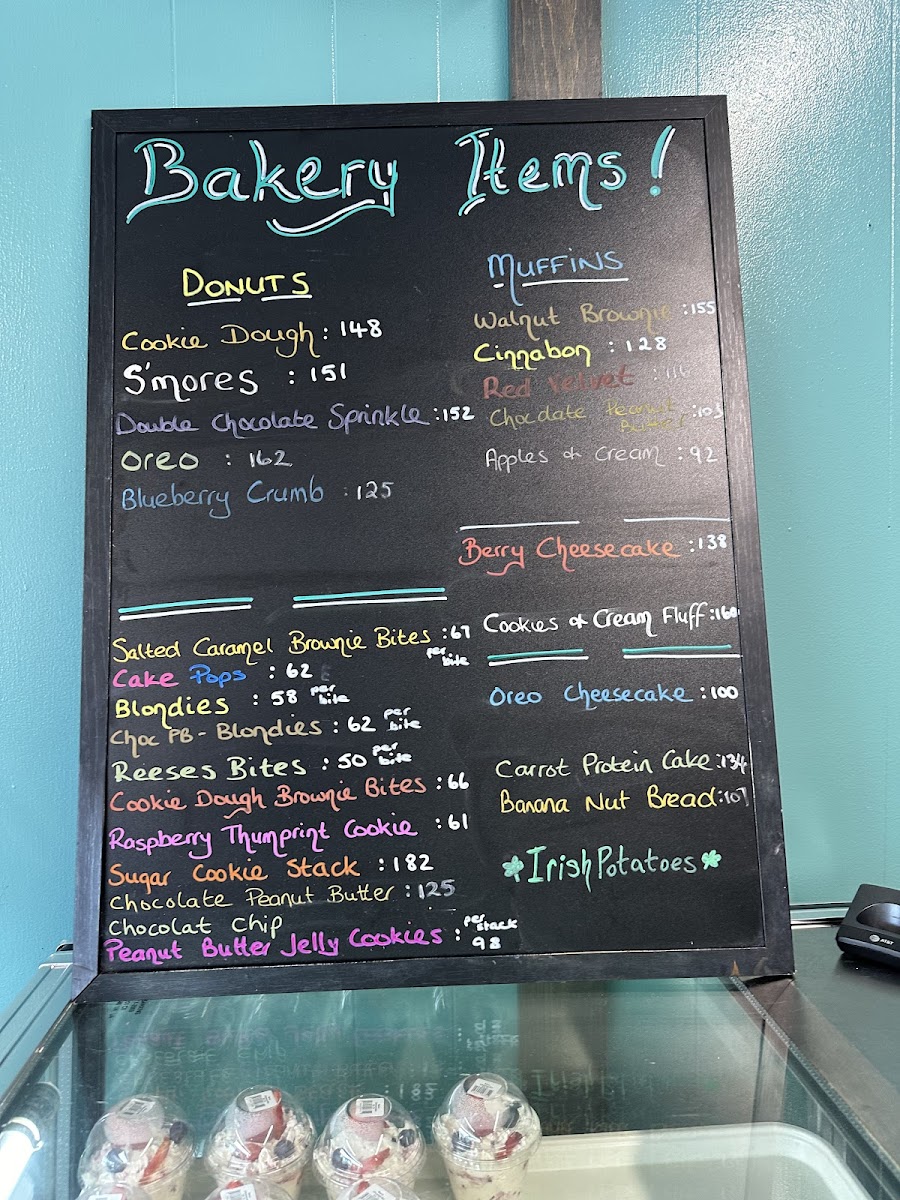 Bakery Items!
DONUTS
Cookie Dough : 148
S'mores : 151
Double Chocolate Sprinkle : 152
Oreo : 162
Blueberry Crumb : 125
Salted Caramel Brownie Bites : 67
per
bite
Cake Pops : 62
Blondies : 58 per
bite
Choc PB - Blondies : 62 per
bite
Reeses Bites : 50 per
bite
Cookie Dough Brownie Bites : 66
Raspberry Thumprint Cookie : 61
Sugar Cookie Stack : 182
Chocolate Peanut Butter : 125
Chocolat Chip
Peanut Butter Jelly Cookies : per
stack
98
MUFFINS
Walnut Brownie : 155
Cinnabon : 128
Red Velvet : 116
Chocolate Peanut : 103
Butter
Apples & Cream : 92
Berry Cheesecake : 138
Cookies & Cream Fluff : 160
Oreo Cheesecake : 100
Carrot Protein Cake : 134
Banana Nut Bread : 107
Irish Potatoes
AT&T